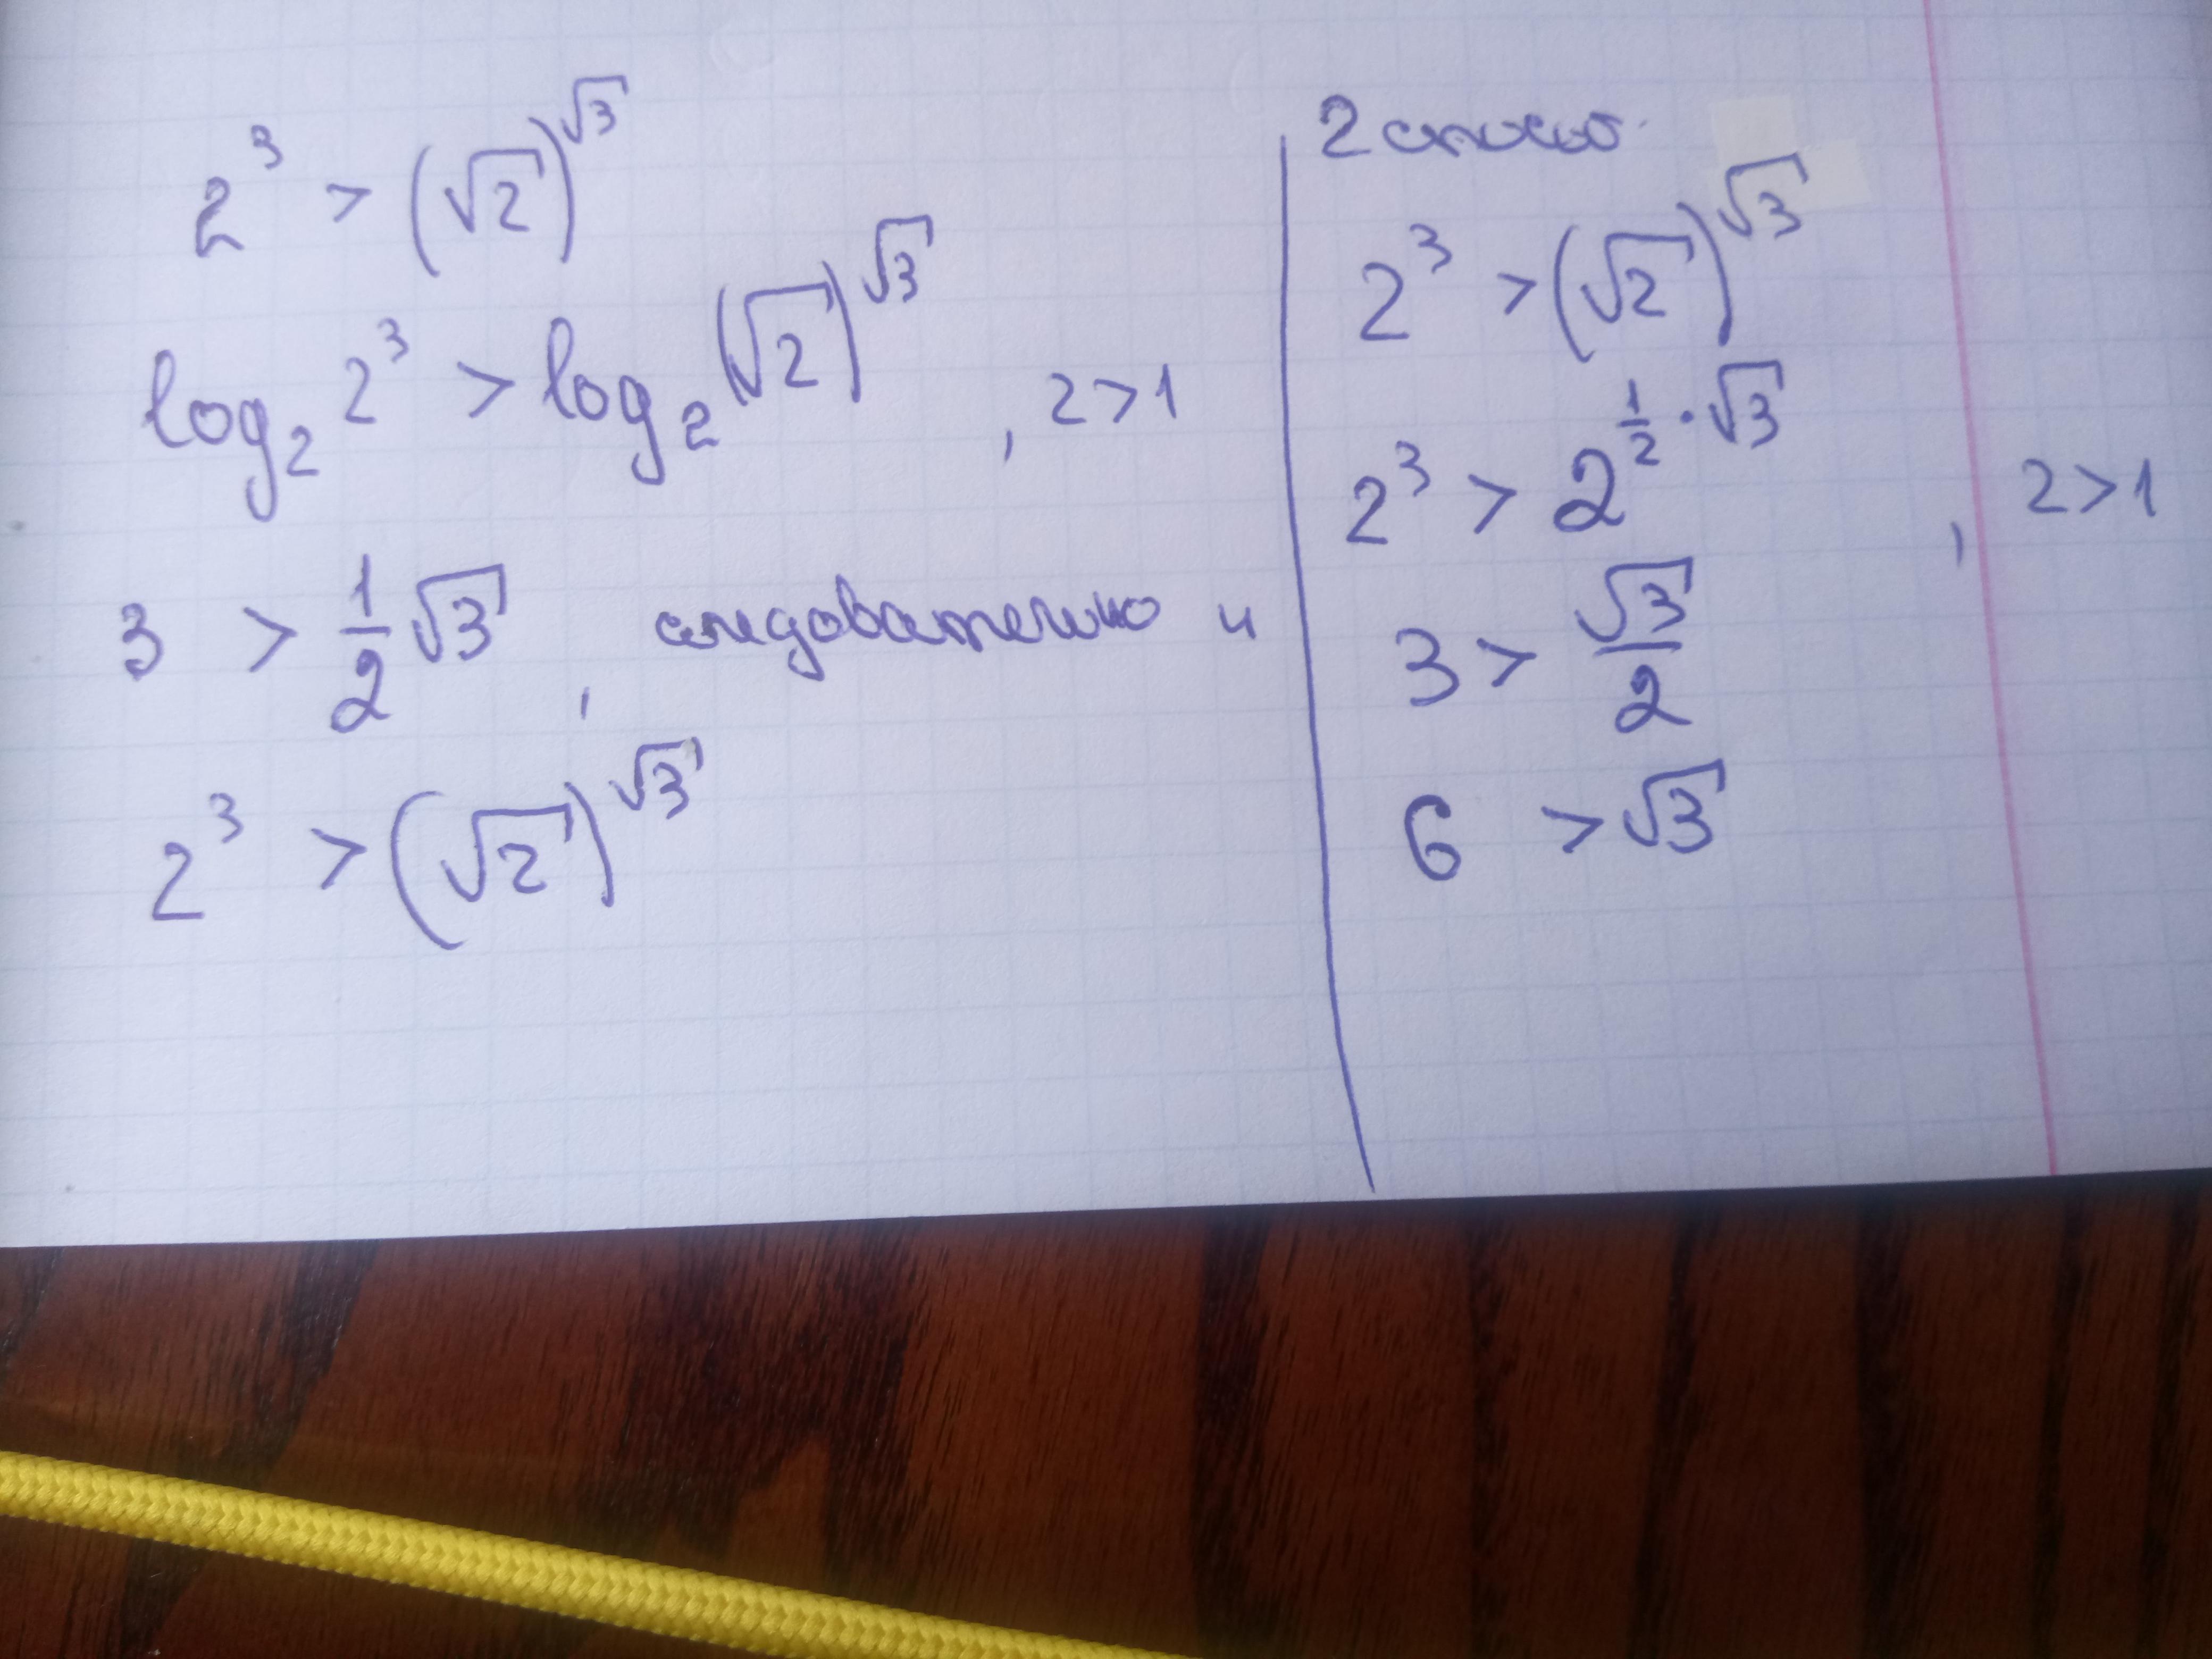 2³ > (√2)^√3
log₂ 2³ > log₂ (√2)^√3 , 2>1
3 > 1/2 √3 , следовательно и
2³ > (√2)^√3
2 способ
2³ > (√2)^√3
2³ > 2^(1/2 · √3) , 2>1
3 > √3/2
6 > √3